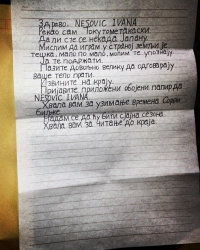 Здраво. NESOVIC IVANA
Рекао сам Токутометакаски.
Да ли сте се некада Јапану.
Мислим да играм у страној земљи је
тешка, мало по мало, молим те упознају.
Ја те подржати.
Пазите довољно велику да одговарају
ваше тело прати.
Извините на крају.
Пријавите приложени обојени папир да
NESOVIC IVANA.
Хвала вам за узимање времена Сорри
биљке.
Надам се да ћу бити сјајна сезона.
Хвала вам за читање до краја.